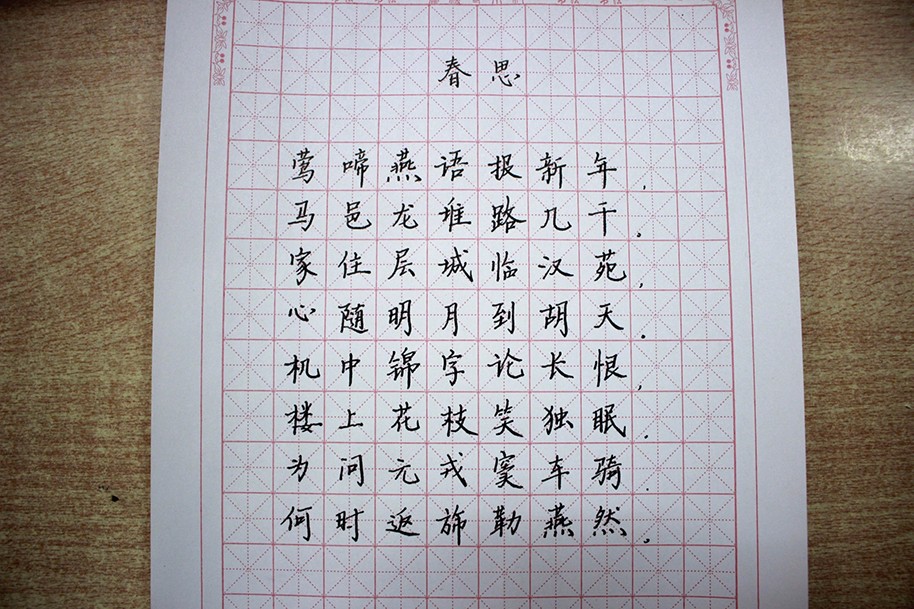 春思
莺啼燕语报新年，
马邑龙堆路几千。
家住层城临汉苑，
心随明月到胡天。
机中锦字论长恨，
楼上花枝笑独眠。
为问元戎窦车骑，
何时返旆勒燕然。